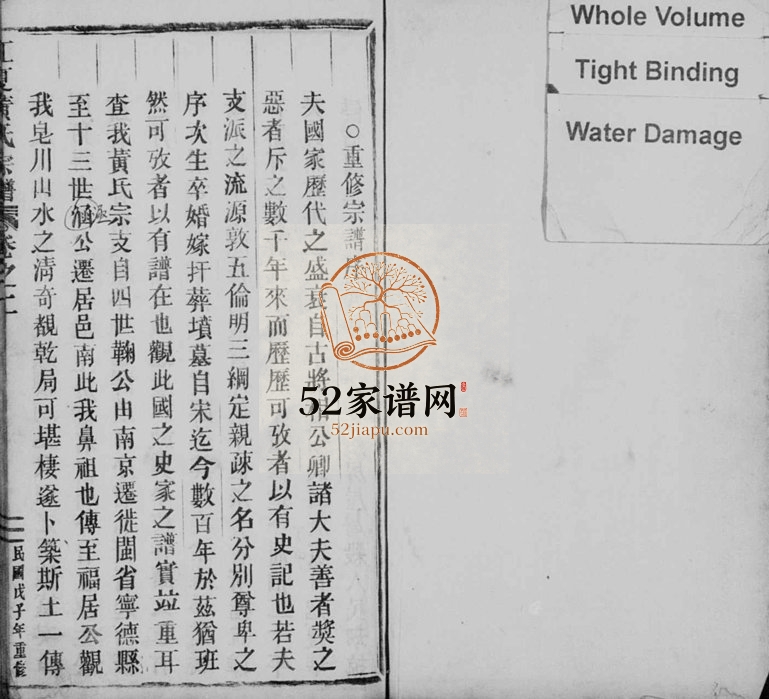 Whole Volume
Tight Binding
Water Damage
○重修宗譜序
夫國家歷代之盛衰自古將相公卿諸大夫善者獎之
惡者斥之數千年來而歷歷可攷者以有史記也若夫
支派之流源敦五倫明三綱定親疎之名分別尊卑之
序次生卒婚嫁扞葬墳墓自宋迄今數百年於茲猶班
然可攷者以有譜在也觀此國之史家之譜實竝重耳
查我黃氏宗支自四世鞠公由南京遷徙閩省寧德縣
至十三世涵公遷居邑南此我鼻祖也傳至福居公觀
我皂川山水之清奇覩乾局可堪棲遂卜築斯土一傳
江夏黃氏宗譜 卷之一
一
民國戊子年重修
52家谱网
52jiapu.com